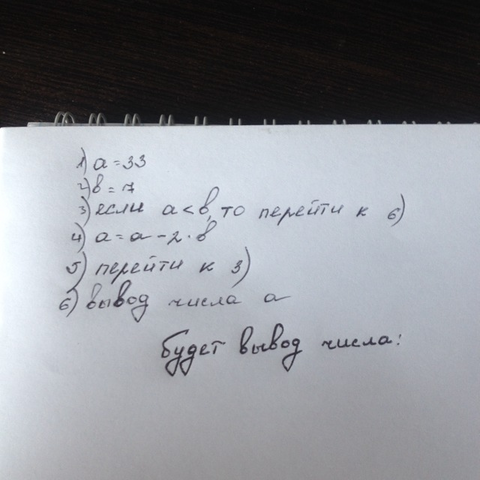 1) a=33
2) b=7
3) если a<b, то перейти к 6)
4) a=a-2·b
5) перейти к 3)
6) вывод числа a
будет вывод числа: